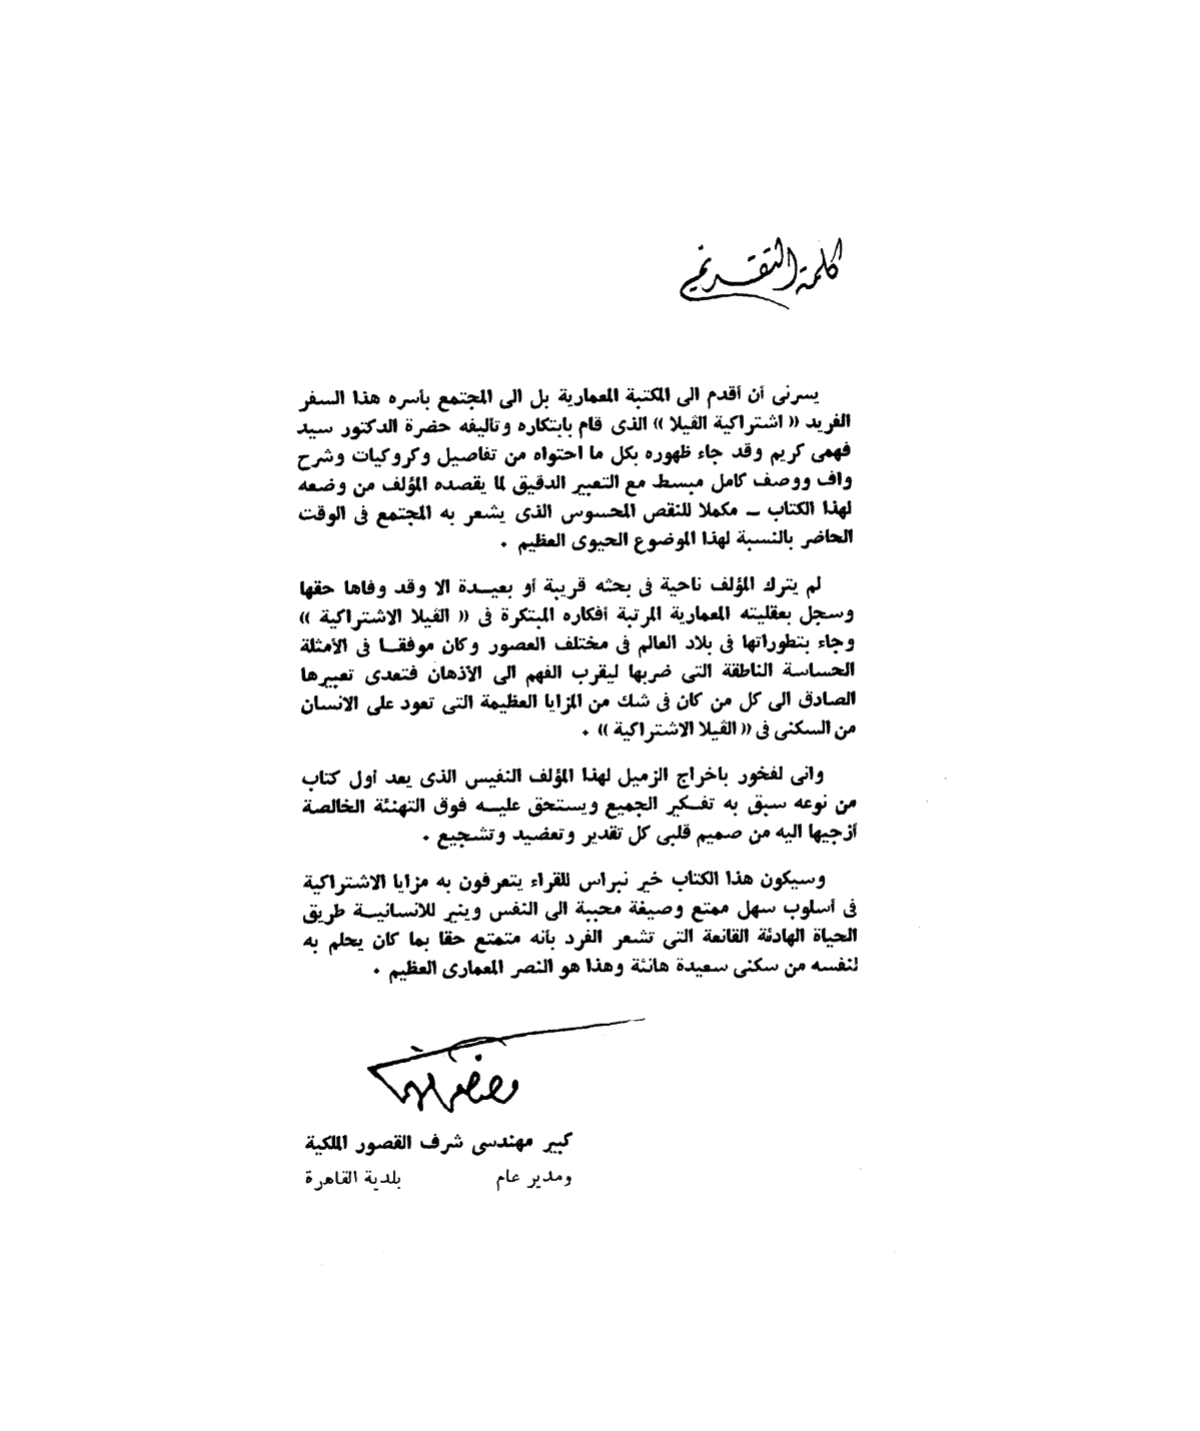 كلمة التقديم
يسرنى أن أقدم الى المكتبة المعمارية بل الى المجتمع بأسره هذا السفر
الفريد « اشتراكية الڤيلا » الذى قام بابتكاره وتأليفه حضرة الدكتور سيد
فهمى كريم وقد جاء ظهوره بكل ما احتواه من تفاصيل وكروكيات وشرح
واف ووصف كامل مبسط مع التعبير الدقيق لما يقصده المؤلف من وضعه
لهذا الكتاب ــ مكملا للنقص المحسوس الذى يشعر به المجتمع فى الوقت
الحاضر بالنسبة لهذا الموضوع الحيوى العظيم .
لم يترك المؤلف ناحية فى بحثه قريبة أو بعيـدة الا وقد وفاها حقها
وسجل بعقليته المعمارية المرتبة أفكاره المبتكرة فى « الڤيلا الاشتراكية »
وجاء بتطوراتها فى بلاد العالم فى مختلف العصور وكان موفقـا فى الأمثلة
الحساسة الناطقة التى ضربها ليقرب الفهم الى الأذهان فتعدى تعبيرها
الصادق الى كل من كان فى شك من المزايا العظيمة التى تعود على الانسان
من السكنى فى « الڤيلا الاشتراكية » .
وانى لفخور باخراج الزميل لهذا المؤلف النفيس الذى يعد أول كتاب
من نوعه سبق به تفـكير الجميع ويستحق عليـه فوق التهنئة الخالصة
أزجيها اليه من صميم قلبى كل تقدير وتعضيد وتشجيع .
وسيكون هذا الكتاب خير نبراس للقراء يتعرفون به مزايا الاشتراكية
فى أسلوب سهل ممتع وصيغة محببة الى النفس وينير للانسانيـة طريق
الحياة الهادئة القانعة التى تشعر الفرد بأنه متمتع حقا بما كان يحلم به
لنفسه من سكنى سعيدة هانئة وهذا هو النصر المعمارى العظيم .
كبير مهندسى شرف القصور الملكية
ومدير عام بلدية القاهرة